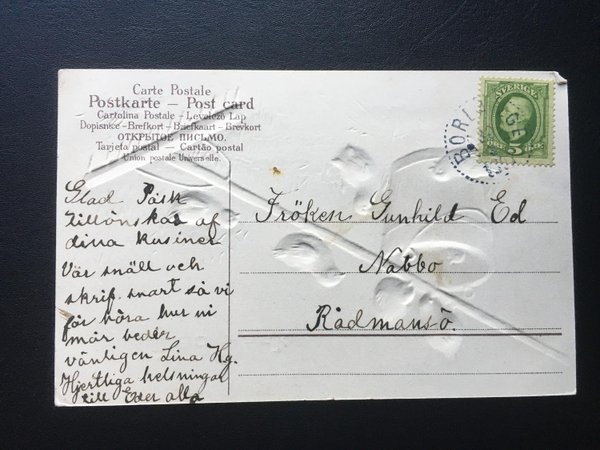 Carte Postale
Postkarte – Post card
Cartolina Postale – Levelezö Lap
Dopisnice – Brefkort – Briefkaart – Brevkort
ОТКРЫТОЕ ПИСЬМО.
Tarjeta postal – Cartão postal
Union postale Universelle.
SVERIGE
5
ÖRE
BORL
GE
Glad Påsk
tillönskas af
dina kusiner
Vär snäll och
skrif. snart så vi
för höra hur ni
mår beder
vänligen Lina Hg.
Hjertliga helsningar
till Eder alla
Fröken Gunhild Ed
Nabbo
Rådmansö.